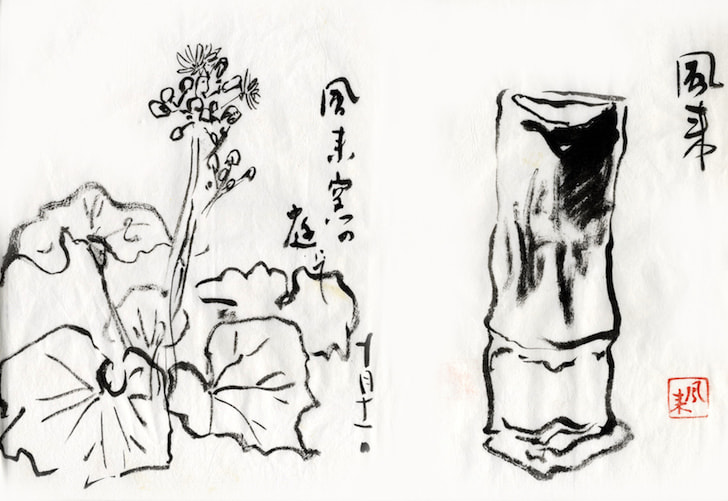 風来窯の
庭
十月十一日
風来
風来